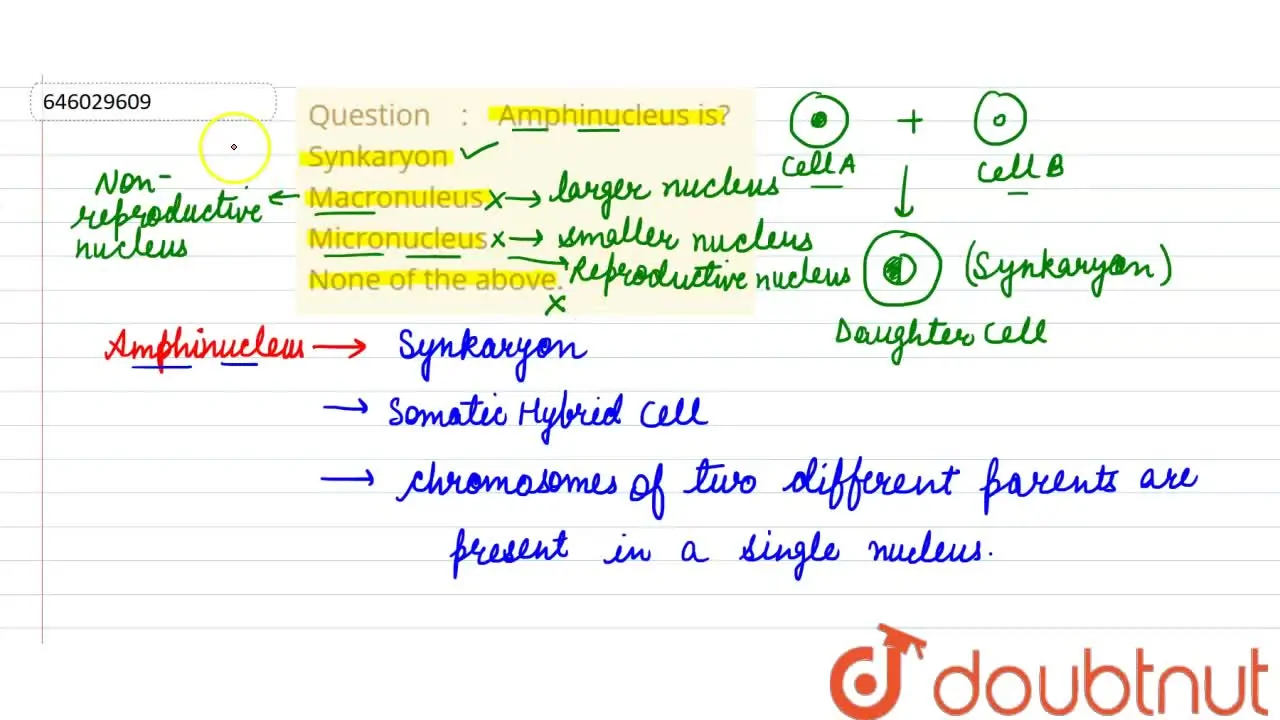 646029609
Question : Amphinucleus is?
Synkaryon
Macronuleus x → larger nucleus
Non-
reproductive
nucleus
Micronucleus x → smaller nucleus
→ Reproductive nucleus
None of the above.
x
+
Cell A
Cell B
(Synkaryon)
Daughter Cell
Amphinucleus → Synkaryon
→ Somatic Hybrid Cell
→ chromosomes of two different parents are
present in a single nucleus.
doubtnut